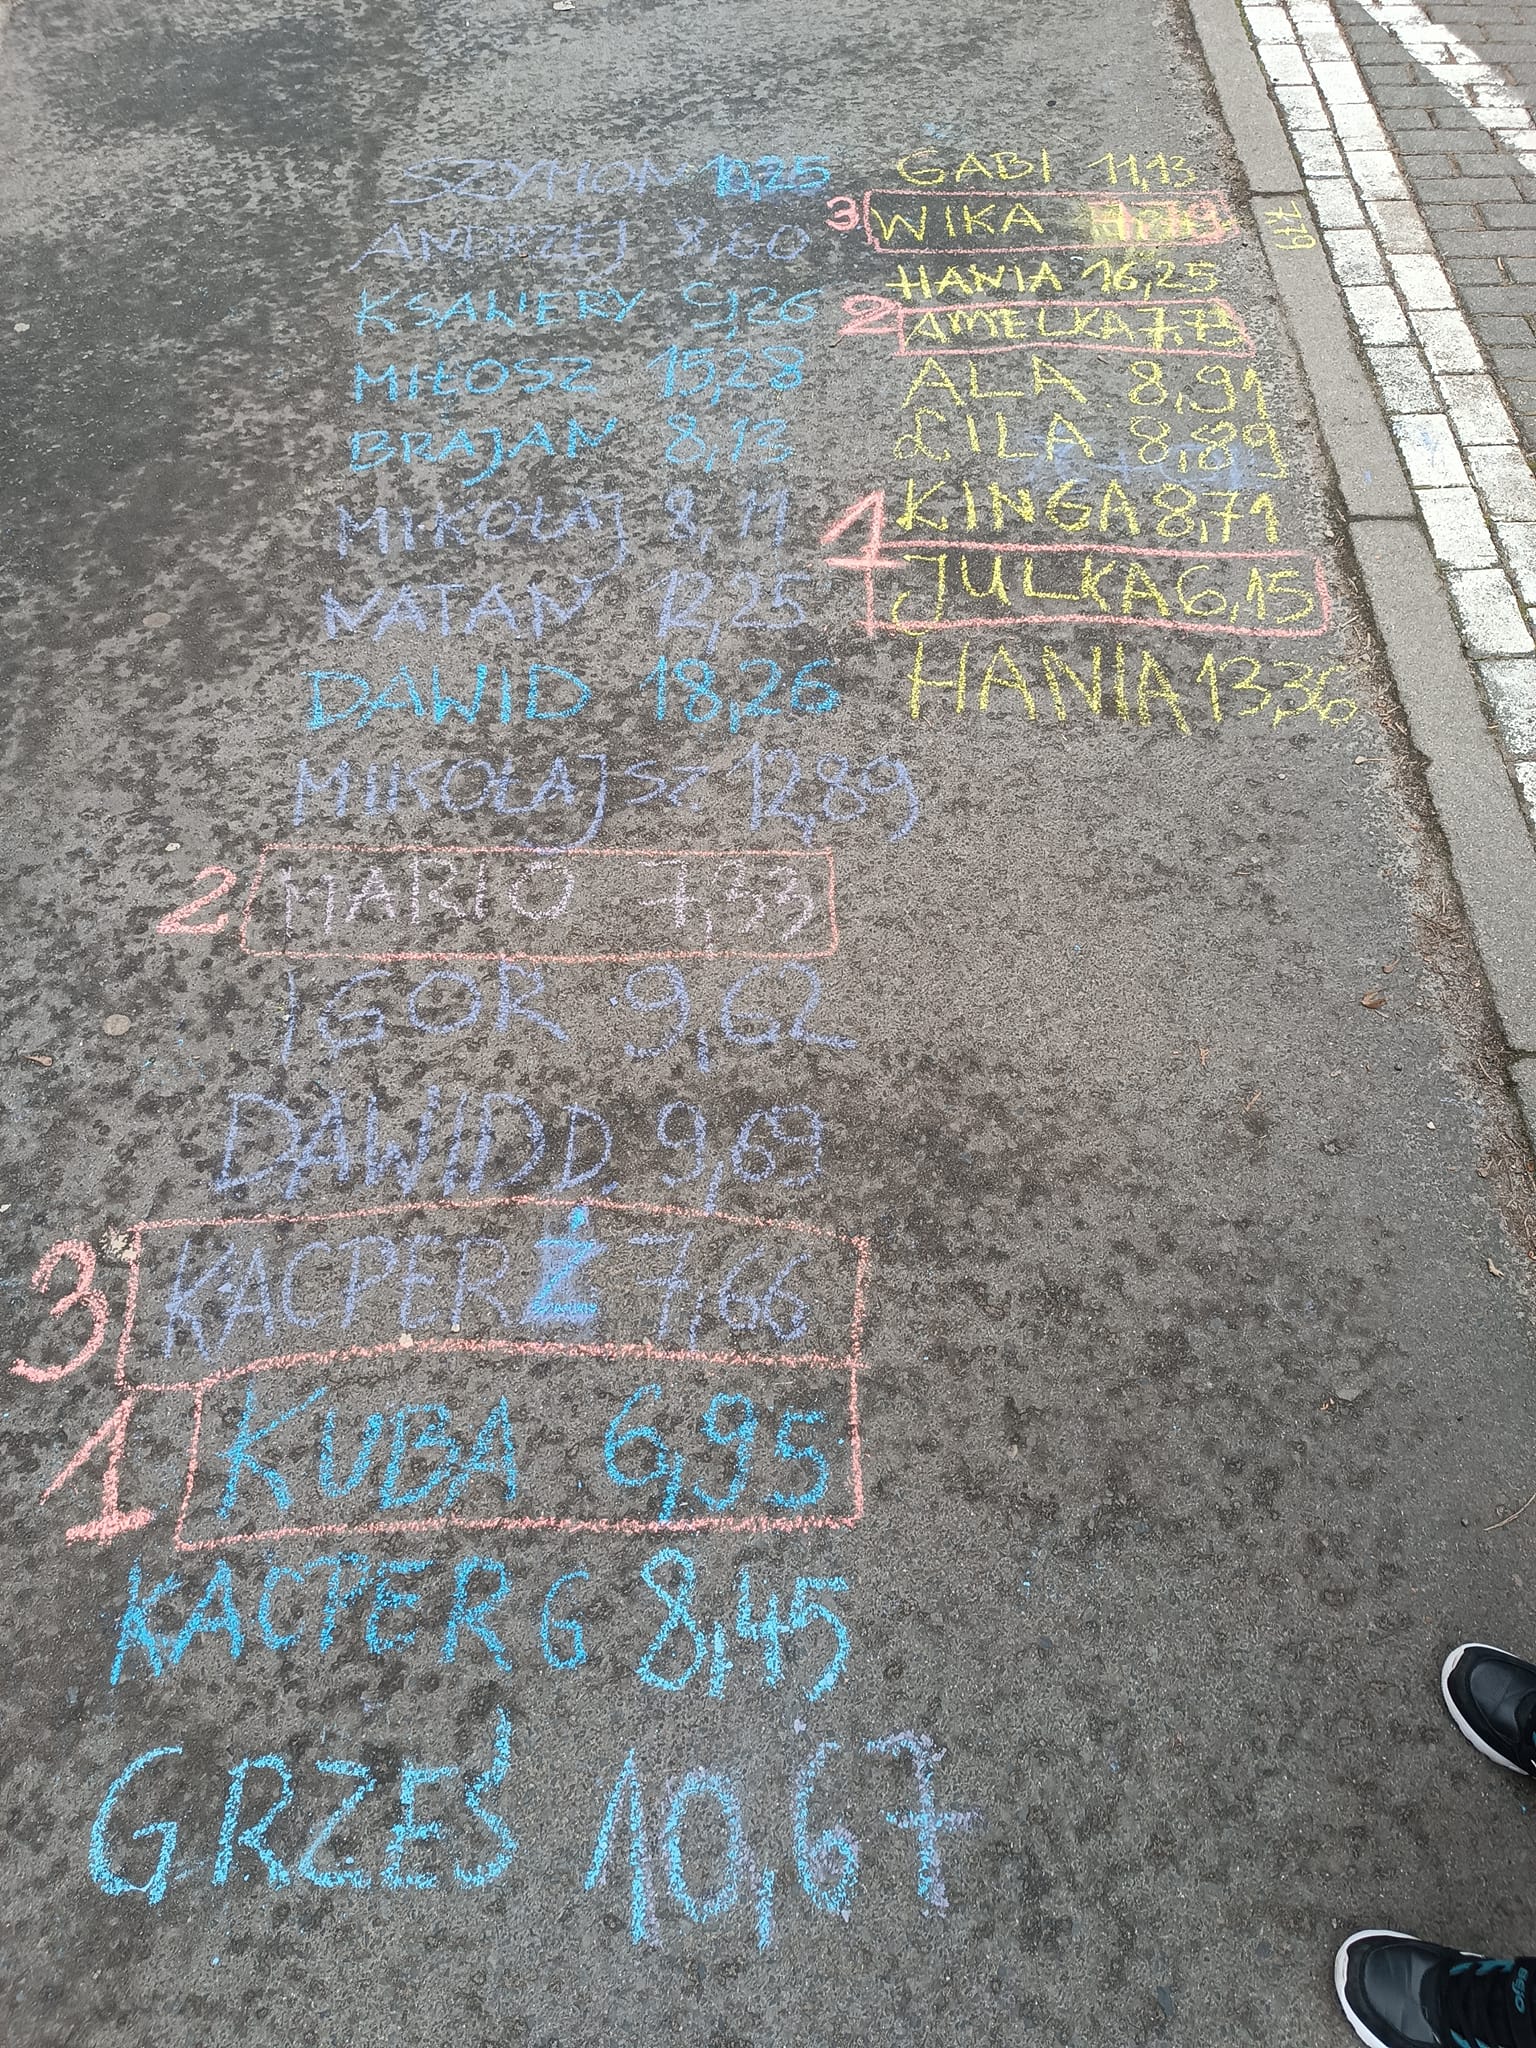 SZYMON 10,25
ANDRZEJ 8,60
KSAWERY 9,26
MIŁOSZ 15,28
BRAJAN 8,13
MIKOŁAJ 8,11
NATAN 12,25
DAWID 18,26
MIKOŁAJ SZ 12,89
2 MARIO 7,33
IGOR 9,62
DAWID D. 9,69
3 KACPER Ż 7,66
1 KUBA 6,95
KACPER G 8,45
GRZEŚ 10,67
GABI 11,13
3 WIKA
779
HANIA 16,25
2 AMELKA 7,73
ALA 8,91
LILA 8,89
KINGA 8,71
1 JULKA 6,15
HANIA 13,36
BEJO